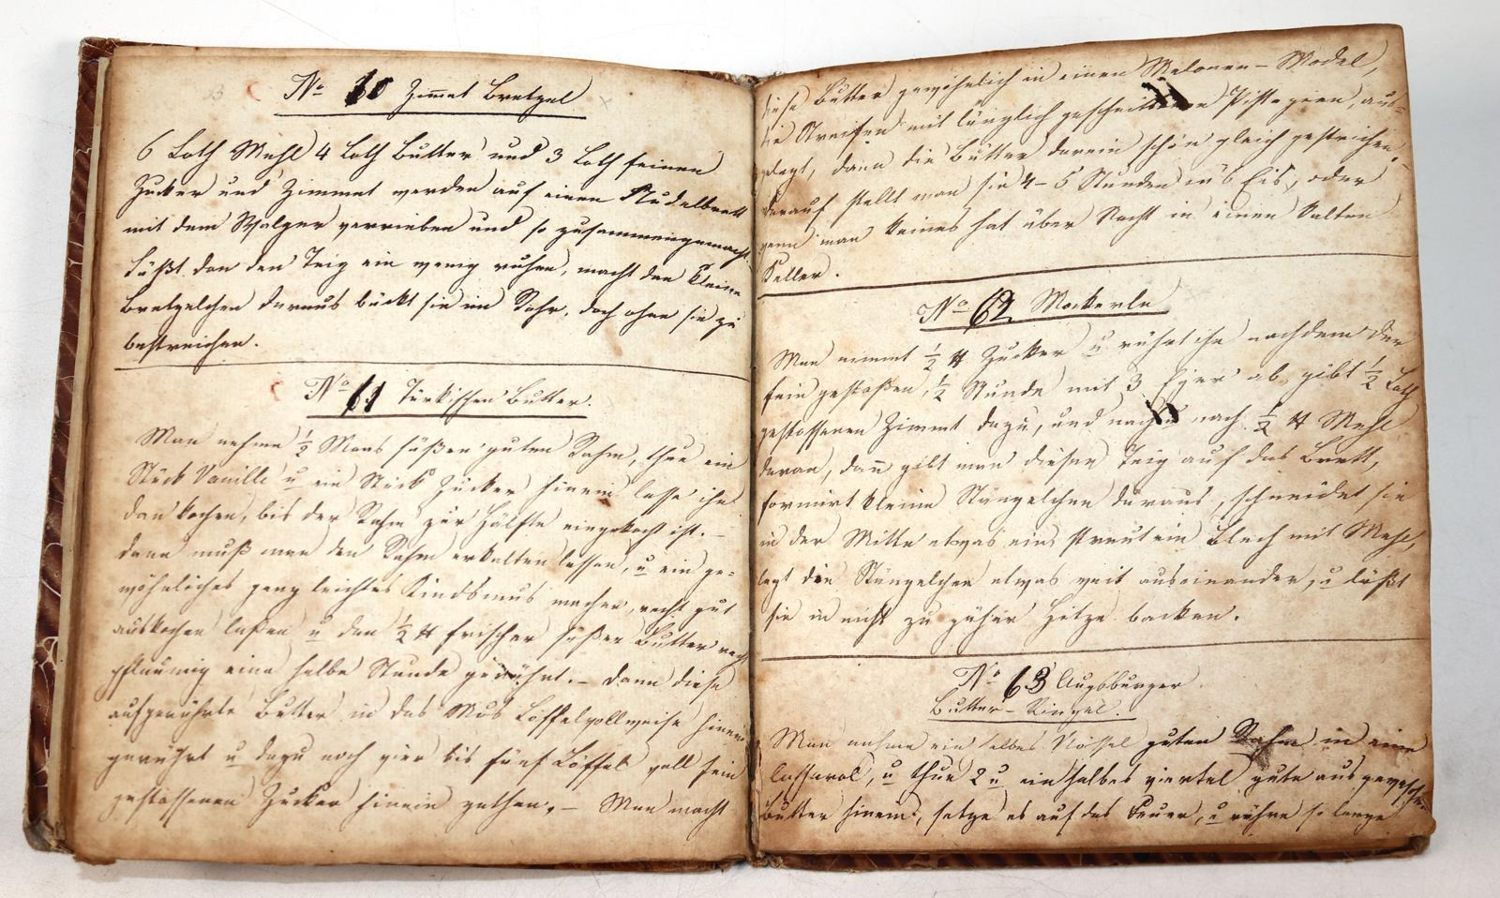 No 60 Zimmet Bretzel
6 Loth Mehl 4 Loth Butter und 3 Loth feinen
Zucker und Zimmet werden auf einen Nudelbrett
mit dem Walger verrieben und so zusammengemacht
läßt dan den Teig ein wenig ruhen, macht den kleine
Bretzelchen daraus bäckt sie im Rohr, doch ohne sie zu
bestreichen.
No 61 Türkischen Butter.
Man nehme ½ Maas süßen guten Rahm, thue ein
Stück Vanille u ein Stück Zucker hinein lasse ihn
dan kochen, bis der Rahm zur Hälfte eingekocht ist. –
dann muß man den Rahm erkalten lassen, u ein ge=
wöhnliches ganz leichtes Kindsmus machen, recht gut
auskochen laßen u den ½ ℔ frischer süßer Butter recht
pflaumig eine halbe Stunde gerührt. – Dann diese
aufgerührte Butter in das Mus Löffelvollweise hinein
gerührt u dazu noch vier bis fünf Löffel voll fein
gestossenen Zucker hinein gethan. – Man macht
diese Butter gewöhnlich in einen Melonen – Model,
die Streifen mit länglich geschnittenen Pistazien, aus=
gelegt, dann die Butter darein schön gleich gestrichen. –
darauf stellt man sie 4 – 5 Stunden in's Eis, oder
wenn man keines hat über Nacht in einen kalten
Keller.
No 62 Mockerle
Man nimmt ½ ℔ Zucker u rührt ihn nachdem der
fein gestoßen, ½ Stunde mit 3 Eyer ab, gibt ½ Loth
gestossenen Zimmt dazu, und nach nach ½ ℔ Mehl
daran, dañ gibt man dieser Teig auf das Brett,
formirt kleine Stängelchen daraus, schneidet sie
in der Mitte etwas ein, streut ein Blech mit Mehl,
legt die Stängelchen etwas weit auseinander, u läßt
sie in nicht zu gäher Hitze backen.
No 63 Augsburger
Butter – Ringel.
Man nehme ein halbes Nössel guten Rahm in eine
Casserol, u thue 2 u ein halbes viertel gute ausgewaschne
Butter hinein, setze es auf das Feuer, u rühre so lange